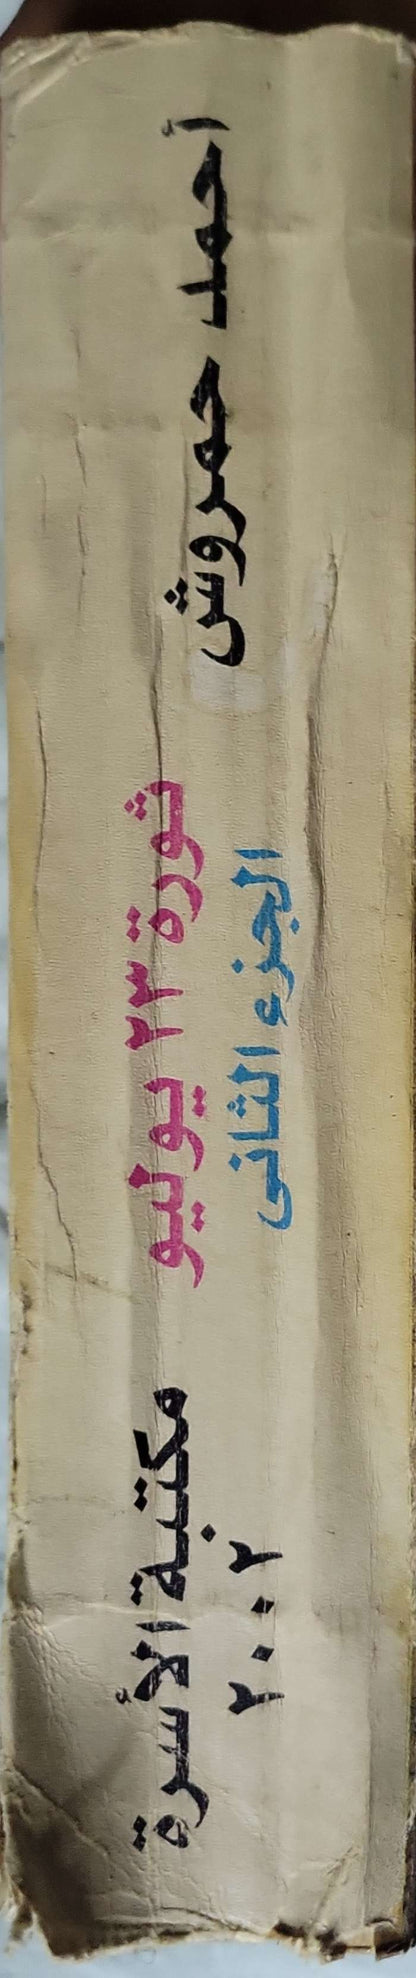 أحمد حمروش
ثورة ٢٣ يوليو
الجزء الثانى
مكتبة الأسرة
٢٠٠٢